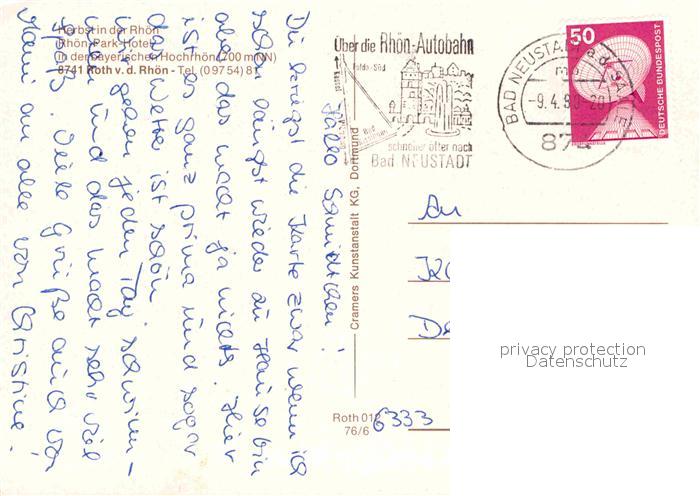 Herbst in der Rhön
Rhön-Park-Hotel
in der bayerischen Hochrhön (700 m NN)
8741 Roth v. d. Rhön - Tel. (09754) 81
Hallo Schnittchen!
Du kriegst die Karte zwar wenn ich
schon längst wieder zu Hause bin
aber das macht ja nichts. Hier
ist es ganz prima und sogar
das Wetter ist schön.
Wir gehen jeden Tag schwim-
men und das macht sehr viel
Spaß. Viele Grüße auch von
Mami an alle von Christine!
Cramers Kunstanstalt KG, Dortmund
Roth 01
76/6
Über die Rhön-Autobahn
Fulda-Süd
schneller öfter nach
Bad NEUSTADT
BAD NEUSTADT a.d. SAALE
-9.4.80-20
874
50
DEUTSCHE BUNDESPOST
An
6333
privacy protection
Datenschutz